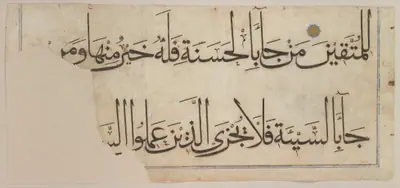 للمتقين من جا بالحسنة فله خير منها ومن
جا بالسيئة فلا يجزى الذين عملوا الس